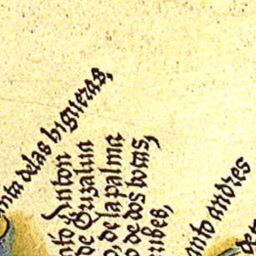 nta delas higueras,
nto Anton
de Guzalua
o, de la palma
o de dos bocas,
ribes,
nto andres